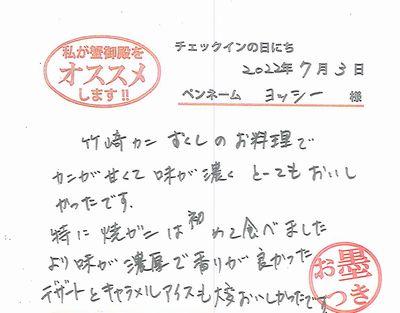 私が蟹御殿を
オススメ
します!!
チェックインの日にち
2022年7月3日
ペンネーム ヨッシー 様
竹崎カニずくしのお料理で
カニが甘くて味が濃くとーてもおいし
かったです。
特に焼ガニは初めて食べました
より味が濃厚で香りが良かった
デザートとキャラメルアイスも大変おいしかったです
お墨
つき